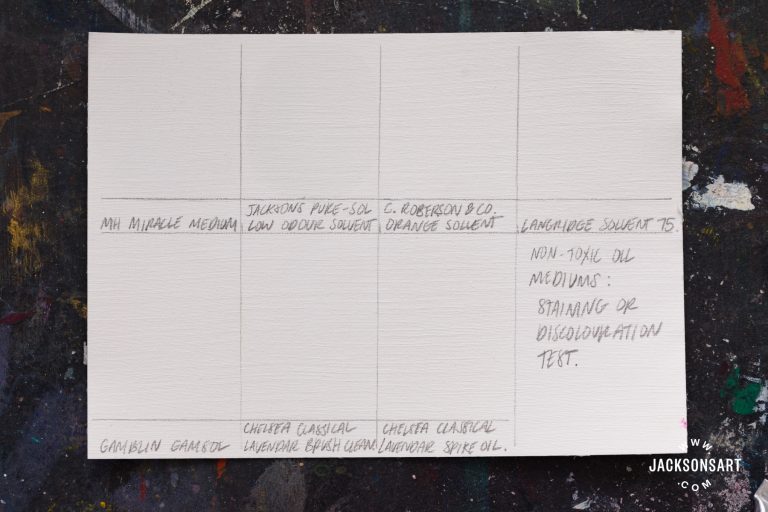 MH MIRACLE MEDIUM
JACKSONS PURE-SOL
LOW ODOUR SOLVENT
C. ROBERSON & CO.
ORANGE SOLVENT
LANGRIDGE SOLVENT 75.
NON-TOXIC OIL
MEDIUMS:
STAINING OR
DISCOLOURATION
TEST.
GAMBLIN GAMSOL
CHELSEA CLASSICAL
LAVENDAR BRUSH CLEAN
CHELSEA CLASSICAL
LAVENDAR SPIKE OIL.
WWW
JACKSONSART
.COM